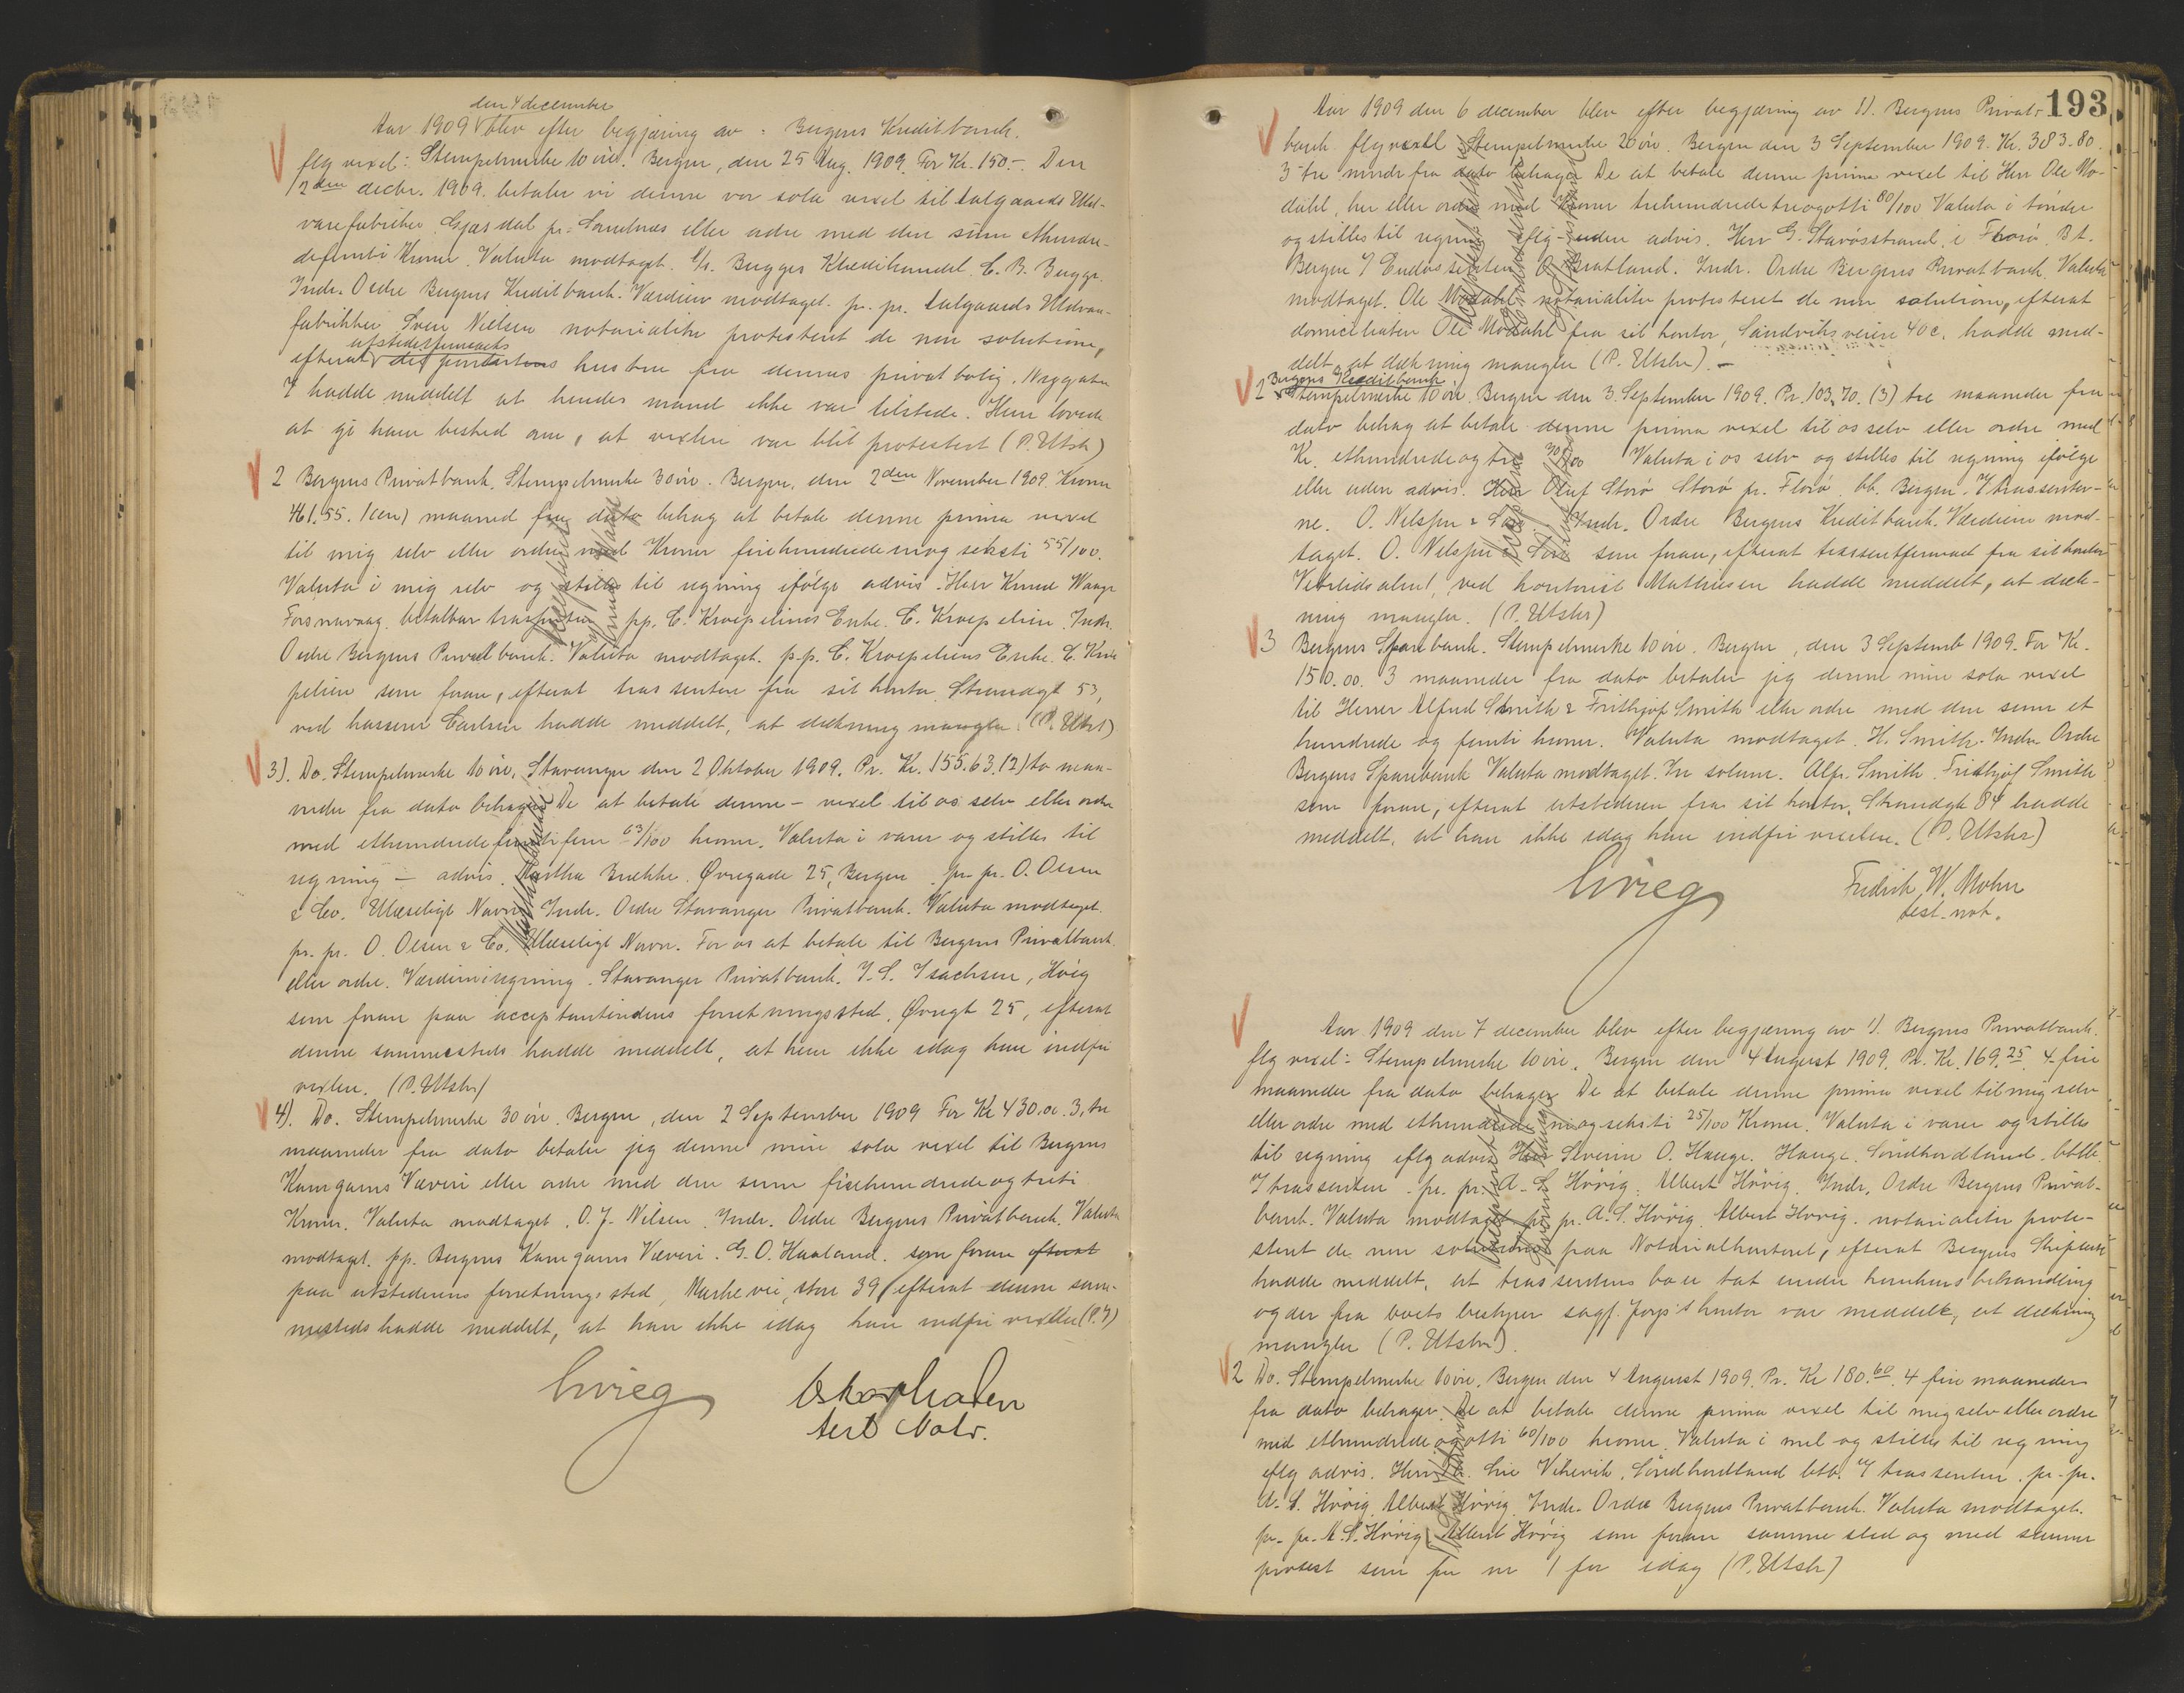 den 4 december
Aar 1909 blev efter begjæring av: Bergens Kreditbank.
flg vexel: Stempelmerke 10 øre. Bergen, den 25 Aug. 1909. For Kr. 150.- Den
2den decbr. 1909. betaler vi denne vor sola vexel til Aalgaards Uld-
varefabriker Gjæsdal pr. Sandnæs eller ordre med den sum ethundre-
defemti Kroner. Valuta modtaget. Bugges Klædehandel. C. B. Bugge.
Indr. Ordre Bergens Kreditbank. Værdien modtaget. pr. pr. Aalgaards Uldvare-
fabrikker Sven Nielsen notarialiter protesteret de non solutione,
utstederfirmaets
efterat des hustru fra dennes privatbolig. Nyggaten
7 hadde meddelt at hendes mand ikke var tilstede. Hun lovede
at gi ham besked om, at vexlen var blit protestert (P. Utstr)
2 Bergens Privatbank. Stempelmerke 30 øre. Bergen, den 2den November 1909. Kroner
461.55. 1 (en) maaned fra dato behag at betale denne prima vexel
til mig selv eller ordre med Kroner firehundrede en og seksti 55/100.
Valuta i mig selv og stilles til regning ifølge advis. Herr Knud Waage
Fosnavaag. betalbar trassenten pp. C. Kroepeliens Enke. C. Kroepelien. Indr.
Ordre Bergens Privatbank. Valuta modtaget. p.p. C. Kroepeliens Enke. C. Kroe
pelien som foran, efterat trassenten fra sit kontor Strandgt 53,
ved kasserer Carlsen hadde meddelt, at dækning mangler. (P. Utst)
3). Do. Stempelmerke 10 øre, Stavanger den 2 Oktober 1909. Pr. Kr. 155.63. (2) to maa-
neder fra dato behager De at betale denne - vexel til os selv eller ordre
med ethundredefemtifem 63/100 kroner. Valuta i varer og stilles til
regning - advis. Martha Brekke. Øvregade 25, Bergen. pr. pr. O. Olsen
& Co. Ulæseligt Navn. Indr. Ordre Stavanger Privatbank. Valuta modtaget.
pr. pr. O. Olsen & Co. Ulæseligt Navn. For os at betale til Bergens Privatbank
eller ordre. Værdien i regning. Stavanger Privatbank. J. S. Isachsen, Høeg
som foran paa acceptantindens forretningssted, Øvregt 25, efterat
denne sammesteds hadde meddelt, at hun ikke idag kan indfri
vexlen. (P. Utstr)
4). Do. Stempelmerke 30 øre. Bergen, den 2 September 1909 For Kr 430.00. 3, tre
maaneder fra dato betaler jeg denne min sola vexel til Bergens
Kamgarns Væveri eller ordre med den sum firehundredeogtreti
Kroner. Valuta modtaget. O. J. Nilsen. Indr. Ordre Bergens Privatbank. Valuta
modtaget. pp. Bergens Kamgarns Væveri. G. O. Haaland. som foran efterat
paa utstederens forretningssted, Markevei, store 39 efterat denne sam-
mesteds hadde meddelt, at han ikke idag kan indfri vexlen (P. )
Grieg
test Notr.
193
Aar 1909 den 6 december blev efter begjæring av 1). Bergens Privat-
bank flg vexel Stempelmerke 20 øre. Bergen den 3 September 1909. Kr. 383.80.
3 - tre mndr fra dato behager De at betale denne prima vexel til Herr Ole Mo-
dahl, her eller ordre med Kroner trehundredetreogotti 80/100 Valuta i tønder
og stilles til regning iflg - uden advis. Herr G. Stavøstrand, i Florø. Bt.
Bergen Endossenten O. Bratland. Indr. Ordre Bergens Privatbank. Valuta
modtaget. Ole Modahl notarialiter protesteret de non solutione, efterat
domiciliaten Ole Modahl fra sit kontor, Sandviksveien 40c. hadde med-
delt, at dækning mangler (P. Utstr). -
Bergens Kreditbank
2 Stempelmerke 10 øre. Bergen den 3. September 1909. Pr. 103.70. (3) tre maaneder fra
dato behag at betale denne prima vexel til os selv eller ordre med
Kr. ethundredeogtre 70/100 Valuta i os selv og stilles til regning ifølge
eller uden advis. Herr Oluf Storø Storø pr. Florø. bt. Bergen. Trassenter-
ne. O. Nilssen & Søn. Indr. Ordre Bergens Kreditbank. Værdien mod-
taget. O. Nilssen & Søn som foran, efterat trassentfirmaet fra sit kontor
Vetrlidsalm 1, ved kontorist Mathiesen hadde meddelt, at dæk-
ning mangler. (P. Utstr)
3 Bergens Sparebank. Stempelmerke 10 øre. Bergen, den 3 Septemb 1909. For Kr.
150.00. 3 maaneder fra dato betaler jeg denne min sola vexel
til Herrer Alfred Smith & Frithjof Smith eller ordre med den sum et
hundrede og femti kroner. Valuta modtaget. H. Smith. Indr. Ordre
Bergens Sparebank Valuta modtaget. In solum. Alfr. Smith. Frithjof Smith
som foran, efterat utstederen fra sit kontor, Strandgt 84 hadde
meddelt, at han ikke idag kan indfri vexelen. (P. Utstr)
Grieg
Fredrik W. Mohn
test. not.
Aar 1909 den 7 december blev efter begjæring av 1). Bergens Privatbank.
flg vexel: Stempelmerke 10 øre. Bergen den 4 August 1909. Pr. Kr. 169.25. 4 - fire
maaneder fra dato behager De at betale denne prima vexel til mig selv
eller ordre med ethundrede niogseksti 25/100 Kroner. Valuta i varer og stilles
til regning iflg advis Herr Severin O. Hauge. Hauge. Søndhordland. btlb.
Trassenten. pr. pr. A. S. Høvig. Albert Høvig. Indr. Ordre Bergens Privat-
bank. Valuta modtaget pr. pr. A. S. Høvig. Albert Høvig. notarialiter prote-
steret de non solutione paa Notarialkontoret, efterat Bergens Skifteret
hadde meddelt, at trassentens bo er tat under konkursbehandling
og der fra boets bestyrer sagf. kontor var meddelt, at dækning
mangler (P. Utstr).
2 Do. Stempelmerke 10 øre. Bergen den 4 August 1909. Pr. Kr 180.60. 4 fire maaneder
fra dato behager De at betale denne prima vexel til mig selv eller ordre
med ethundredeogotti 60/100 kroner. Valuta i mel og stilles til regning
iflg advis. Herr Lie Vikevik, Søndhordland btlb. Trassenten. pr. pr.
A. S. Høvig Albert Høvig. Indr. Ordre Bergens Privatbank. Valuta modtaget.
pr. pr. A. S. Høvig Albert Høvig som foran samme sted og med samme
protest som for nr 1 for idag (P. Utstr)